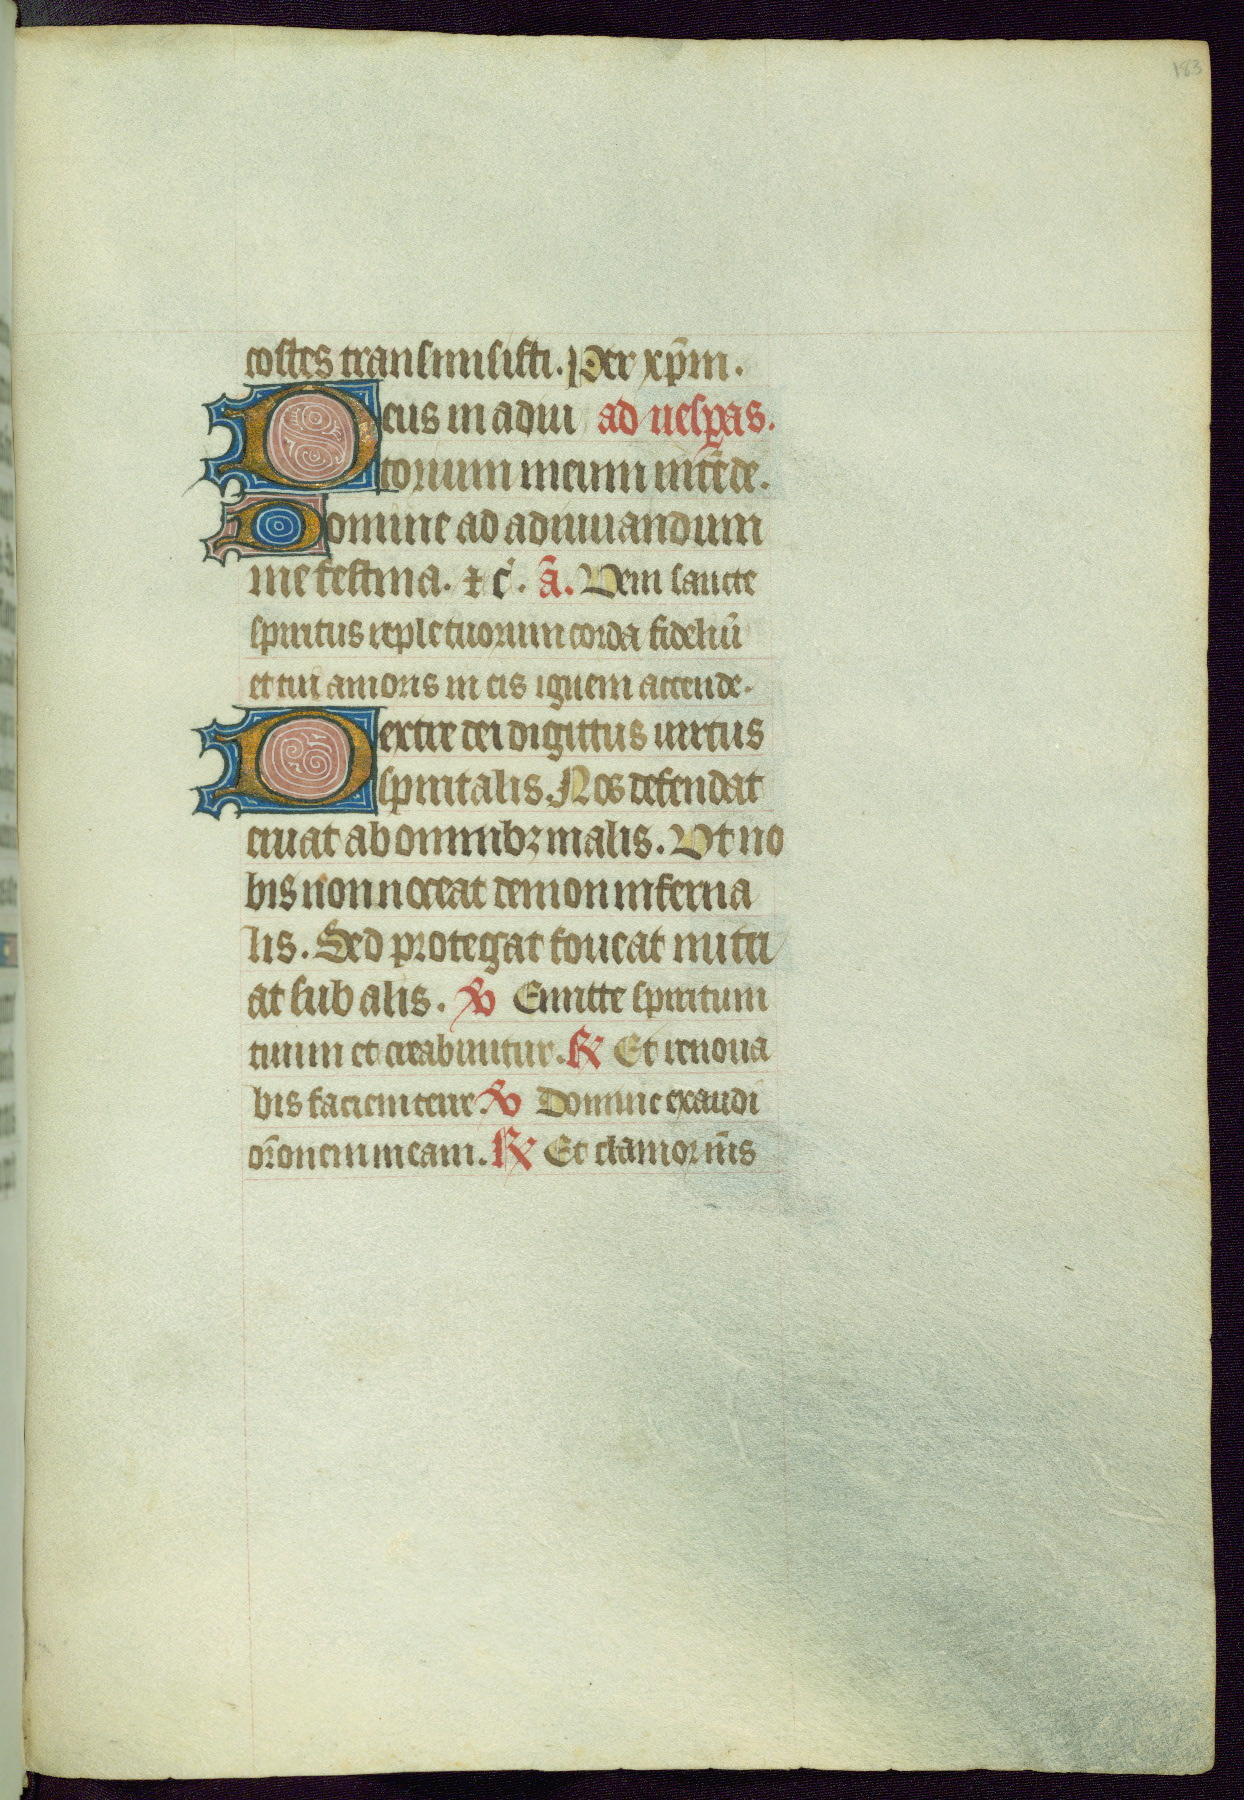 183
costes transmisisti. Per xp̄m.
Deus in adiu ad uesꝑas.
torium meum intēde.
Domine ad adiuuandum
me festina. ⁊ c̄. ā. Veni sancte
spiritus reple tuorum corda fideliū
et tui amoris in eis ignem accende.
Dextre dei digittus uirtus
spiritalis. Nos defendat
eruat ab omnibꝫ malis. Vt no
bis non noceat demon inferna
lis. Sed protegat foueat nutri
at sub alis. ℣ Emitte spiritum
tuum et creabuntur. ℟ Et renoua
bis faciem terre. ℣ Domine exaudi
or̄onem meam. ℟ Et clamor m̄s